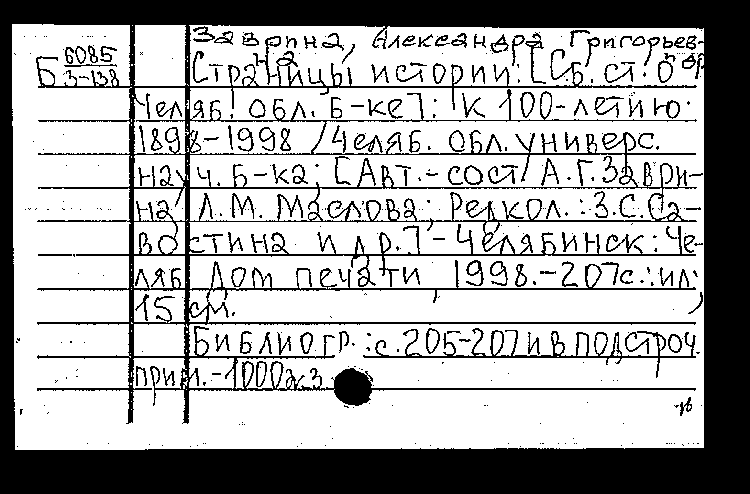 Заврина, Александра Григорьев-
на и др.
Б 6085
3-138
Страницы истории: [Сб. ст. о
Челяб. обл. б-ке]: К 100-летию.
1898-1998 / Челяб. обл. универс.
науч. б-ка; [Авт.-сост. А.Г. Заври-
на, Л.М. Маслова; Редкол.: З.С. Са-
востина и др.] - Челябинск: Че-
ляб. Дом печати, 1998.-207с.: ил;
15 см.
Библиогр.: с. 205-207 и в подстроч.
прим.-1000экз